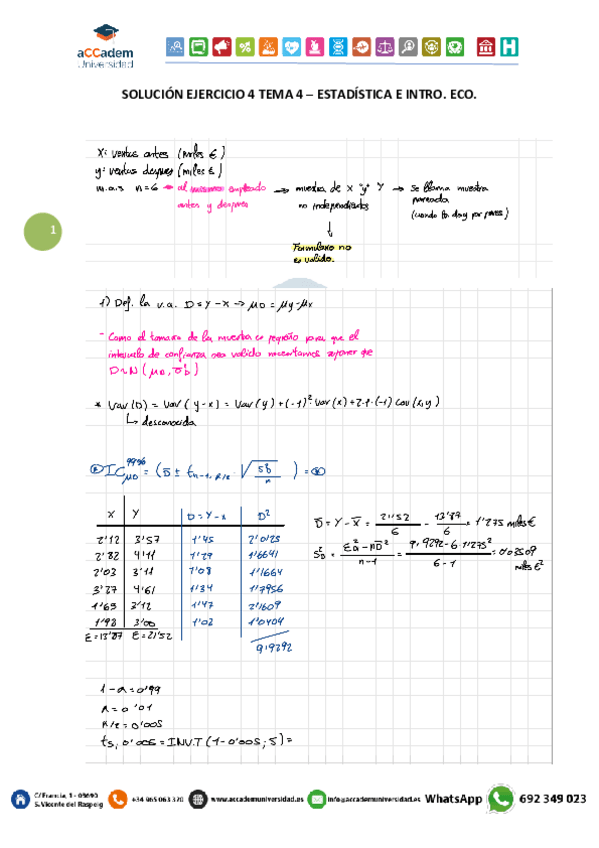 aCCadem
Universidad
SOLUCIÓN EJERCICIO 4 TEMA 4 – ESTADÍSTICA E INTRO. ECO.
1
X: ventas antes (miles €)
Y: ventas despues (miles €)
m.a.s n=6 → al mismo empleado antes y despues → muestra de X "y" Y no independientes → Se llama muestra pareada (cuando lo day por pares)
↓
Formulario no
es valido.
1) Def. la v.a. D = Y - X → μD = μy - μx
- Como el tamaño de la muestra es pequeño para que el
intervalo de confianza sea valido necesitamos suponer que
D~N(μD, σ²D)
* Var(D) = Var(Y-X) = Var(Y) + (-1)²·Var(X) + 2·1·(-1) Cov(X,Y)
↳ desconocida
IC 99% μD = (D̄ ± tn-1, α/2 · √(S²D/n)) =
X Y D=Y-X D²
2'12 3'57 1'45 2'1025
2'82 4'11 1'29 1'6641
2'03 3'11 1'08 1'1664
3'27 4'61 1'34 1'7956
1'65 3'12 1'47 2'1609
1'98 3'00 1'02 1'0404
Σ=13'87 Σ=21'52
9'9292
D̄ = Ȳ - X̄ = 21'52/6 - 13'87/6 = 1'275 miles €
S²D = (ΣD² - nD̄²)/(n-1) = (9'9292 - 6·1'275²)/(6-1) = 0'03509
miles €²
1-α = 0'99
α = 0'01
α/2 = 0'005
t5, 0'005 = INV.T(1-0'005; 5) =
C/Francia, 1 - 03690
S.Vicente del Raspeig
+34 965 063 320
www.accademuniversidad.es
info@accademuniversidad.es
WhatsApp
692 349 023